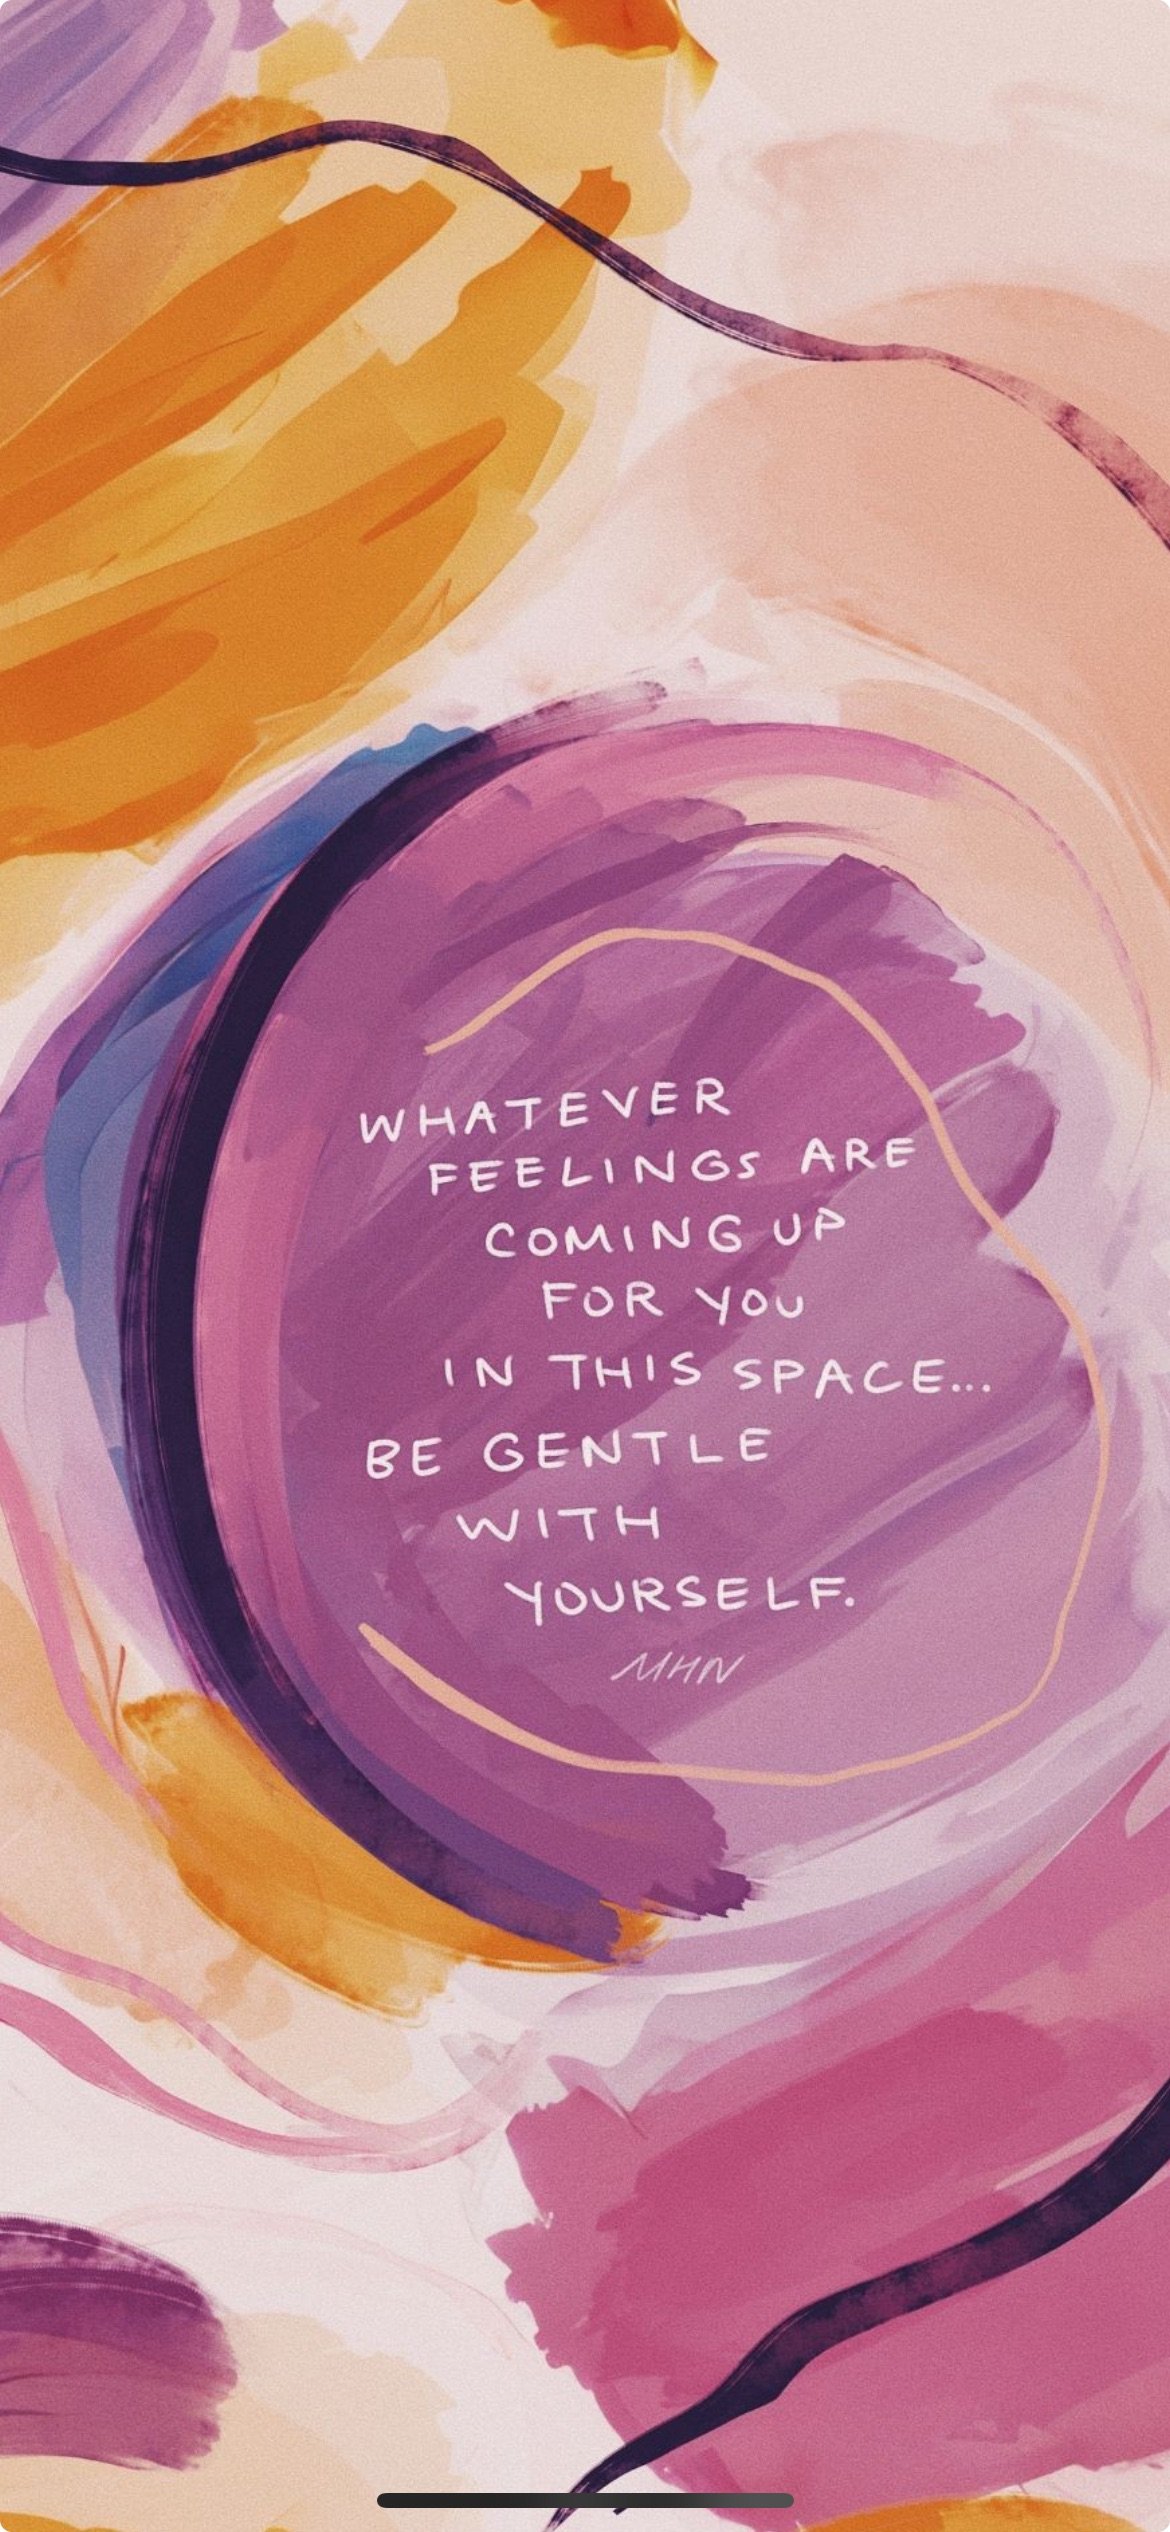 WHATEVER
FEELINGS ARE
COMING UP
FOR YOU
IN THIS SPACE...
BE GENTLE
WITH
YOURSELF.
MHN